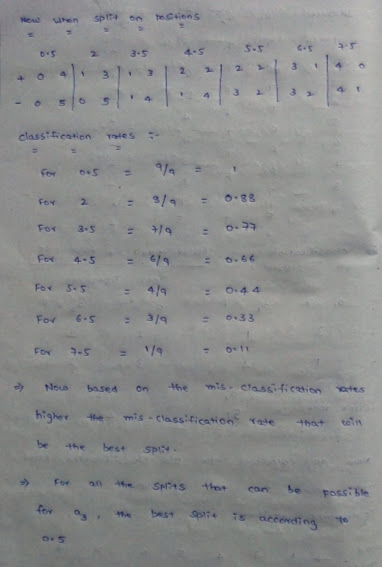 Now when split on positions
0.5 2 3.5 4.5 5.5 6.5 7.5
+ 0 4 | 1 3 | 1 3 | 2 2 | 2 2 | 3 1 | 4 0
- 0 5 | 0 5 | 1 4 | 1 4 | 3 2 | 3 2 | 4 1
Classification rates :-
for 0.5 = 9/9 = 1
For 2 = 8/9 = 0.88
For 3.5 = 7/9 = 0.77
For 4.5 = 6/9 = 0.66
For 5.5 = 4/9 = 0.44
For 6.5 = 3/9 = 0.33
For 7.5 = 1/9 = 0.11
⇒ Now based on the mis-classification rates
higher the mis-classification rate that win
be the best split.
⇒ For all the splits that can be possible
for a3, the best split is according to
0.5